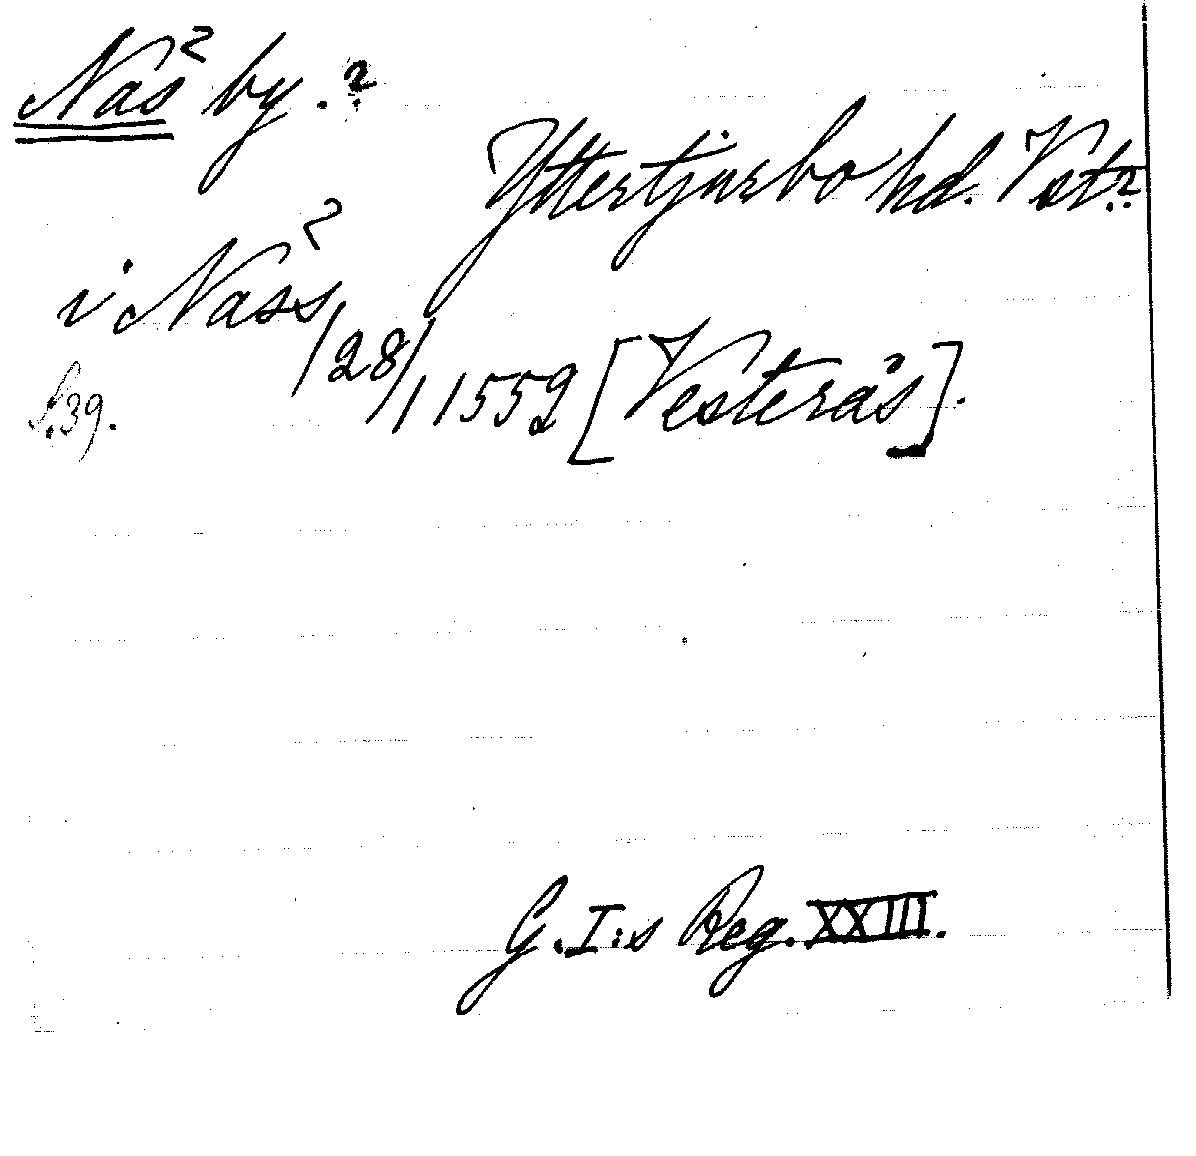 Nas² by.?
Yttertjurbo hd. Vstm?
i Nass²
/28/1 1552 [Vesterås].
S. 39.
G.I:s Reg. XXIII.